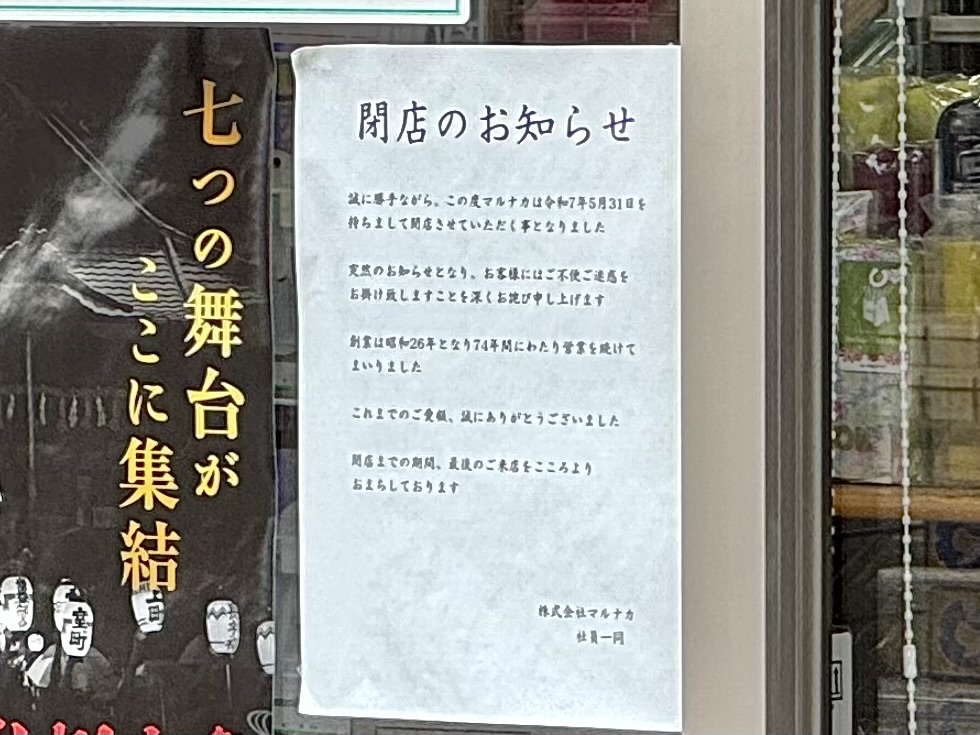 閉店のお知らせ
誠に勝手ながら、この度マルナカは令和7年5月31日を
持ちまして閉店させていただく事となりました
突然のお知らせとなり、お客様にはご不便ご迷惑を
お掛け致しますことを深くお詫び申し上げます
創業は昭和26年となり74年間にわたり営業を続けて
まいりました
これまでのご愛顧、誠にありがとうございました
閉店までの期間、最後のご来店をこころより
おまちしております
株式会社マルナカ
社員一同
七つの舞台が
ここに集結
室町